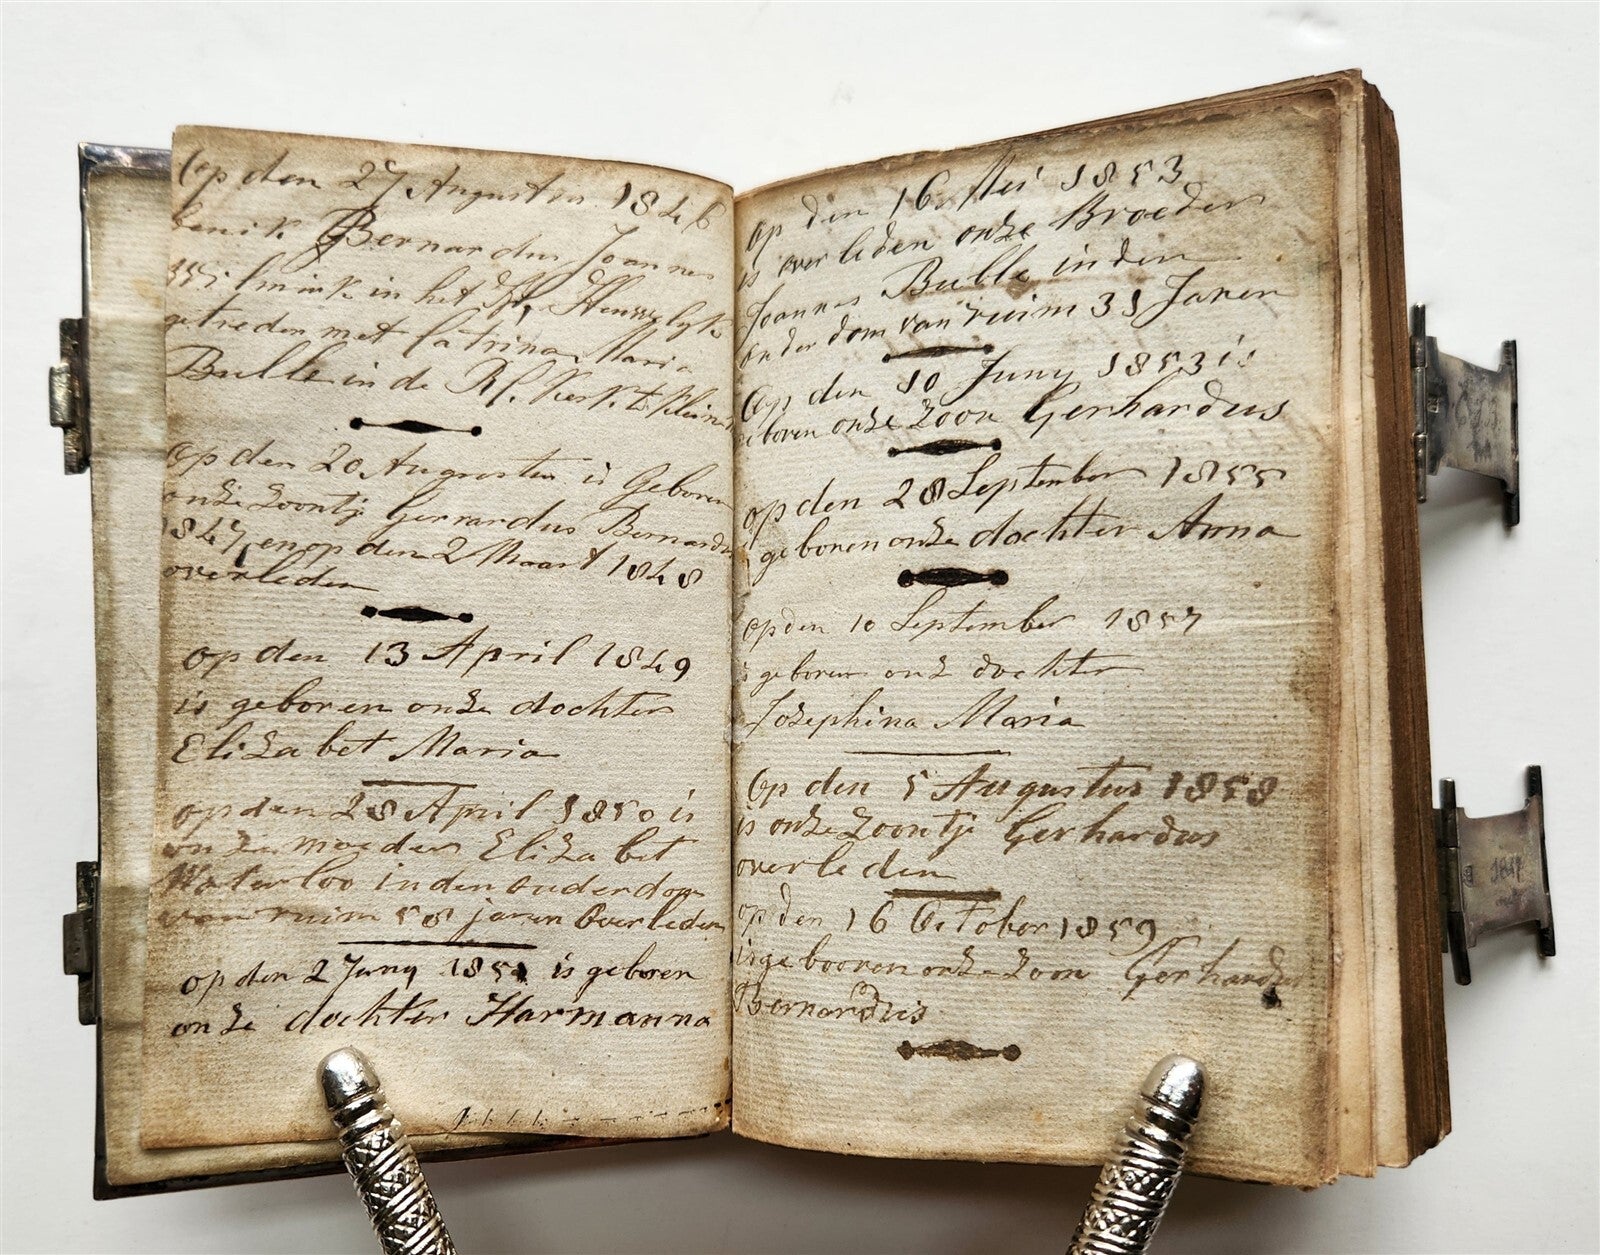 Op den 27 Augustus 1846
ben ik Bernardus Joannes
in het H. Huwelyk
getreden met Catrina Maria
Bulle in de R. Kerk te
Op den 20 Augustus is Geboren
onze Zoontje Gerrardus Bernardus
1847, en op den 2 Maart 1848
overleden
op den 13 April 1849
is geboren onze dochter
Elizabet Maria
op den 28 April 1850 is
onze moeder Elizabet
Waterloo in den ouderdom
van ruim 58 jaren Overleden
op den 2 Juny is geboren
onze dochter Harmanna
op den 16 Mei 1853
is overleden onze Broeder
Joannes Bulle in den
ouderdom van ruim 31 Jaren
Op den 10 Juny 1853 is
geboren onze Zoon Gerhardus
op den 28 September 1855
geboren onze dochter Anna
op den 10 September 1857
is geboren onze dochter
Jozephina Maria
Op den 5 Augustus 1858
is onze Zoontje Gerhardus
overleden
op den 16 October 1859
is gebooren onze Zoon Gerhardus
Bernardus